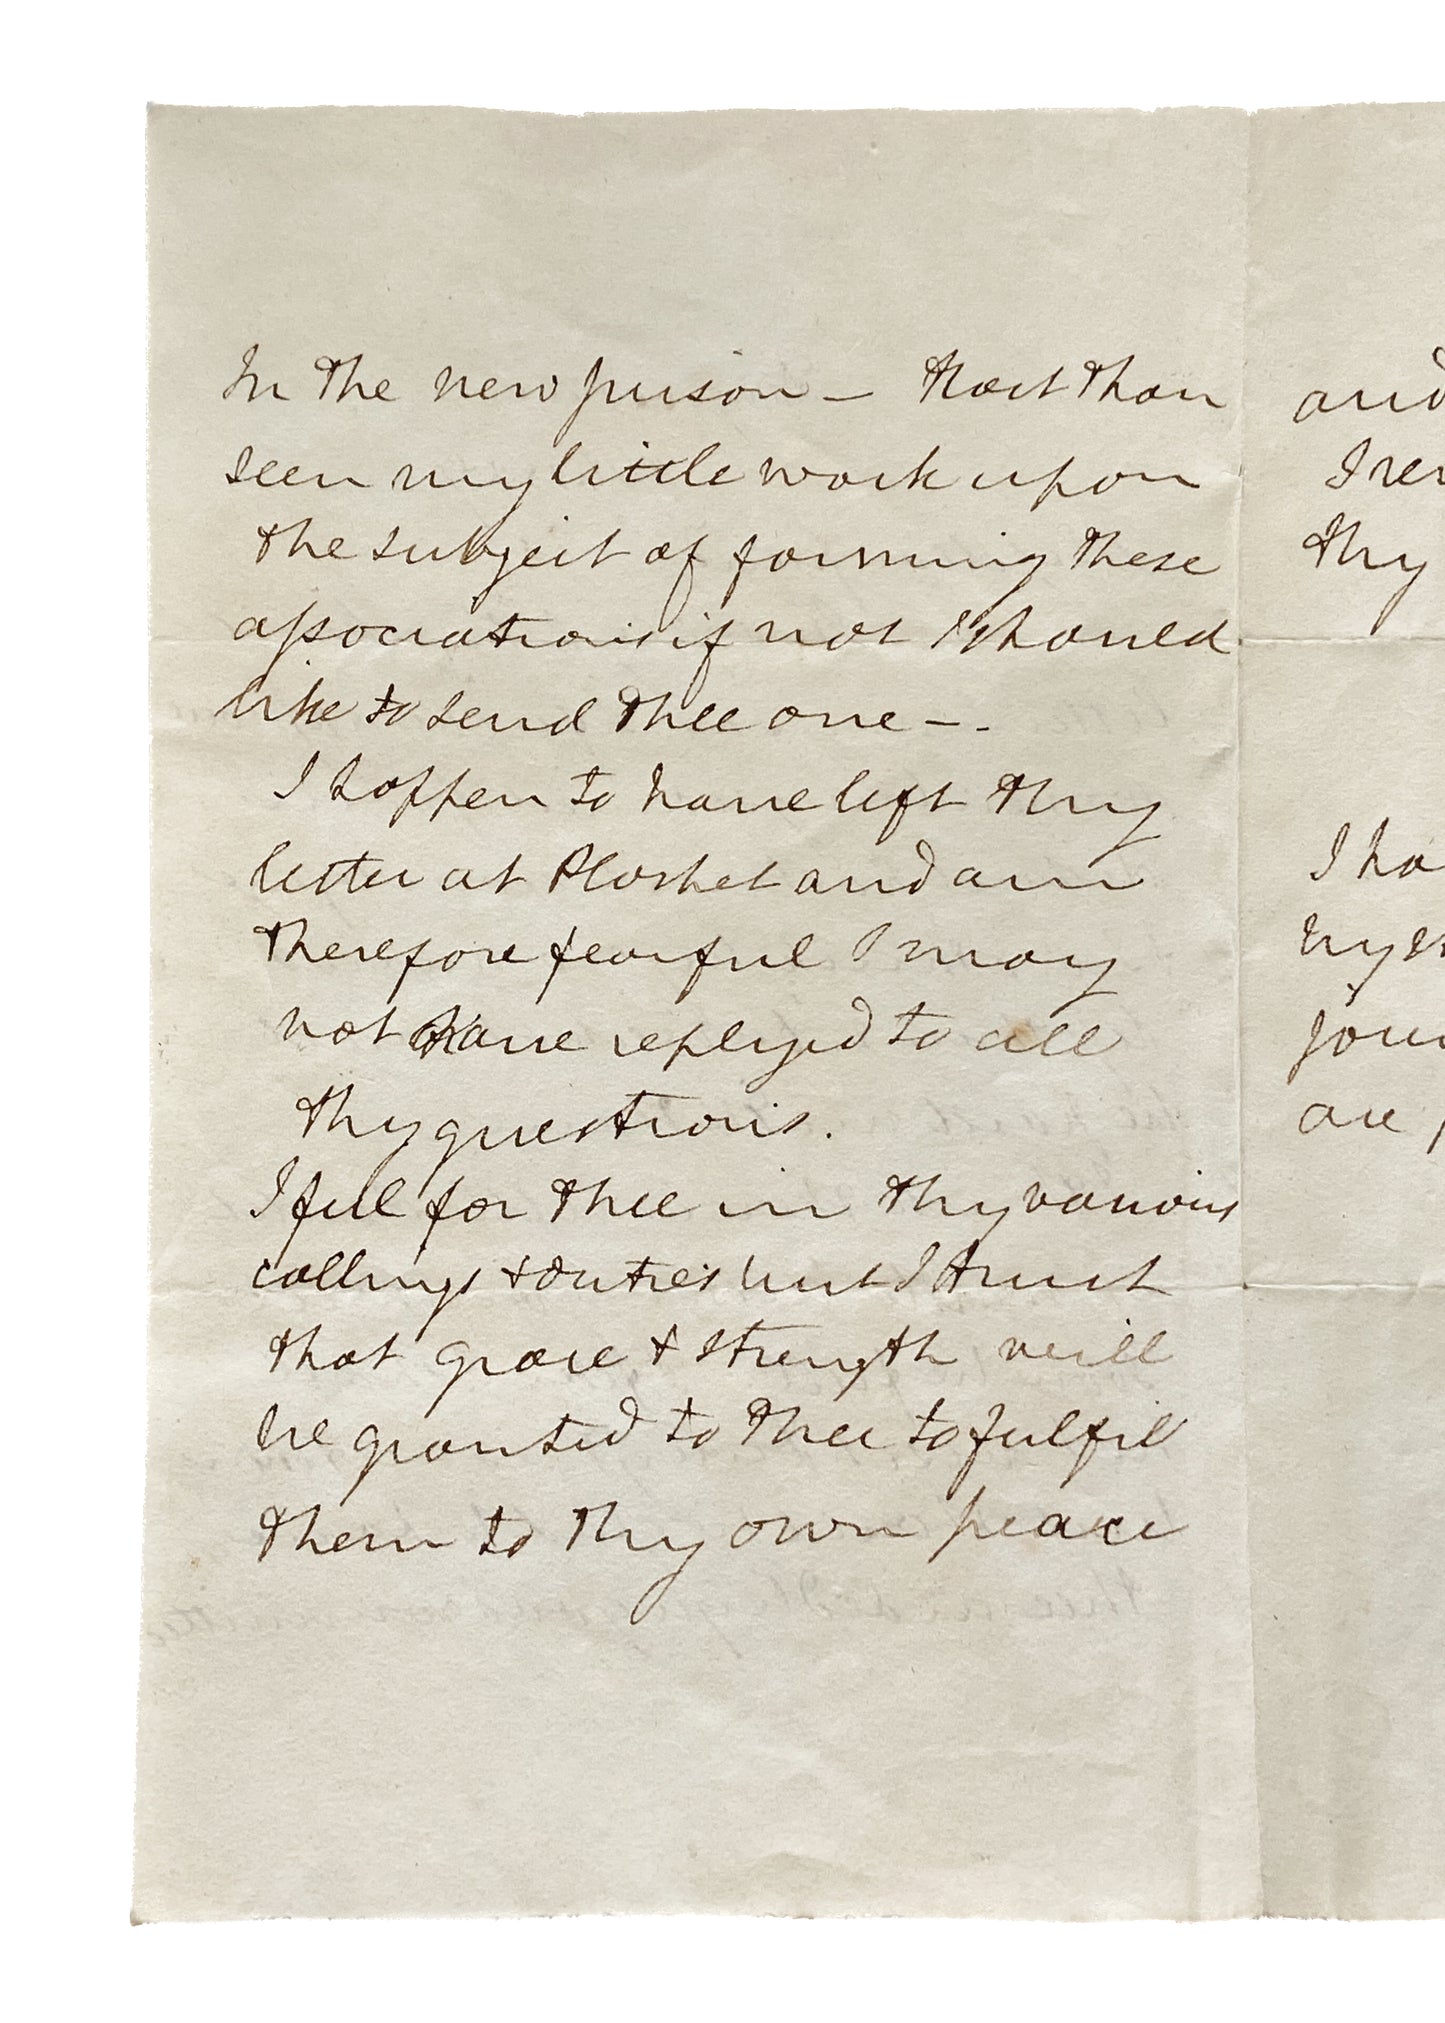 In the new prison – Hast thou
seen my little work upon
the subject of forming these
associations if not I should
like to send thee one –.
I happen to have left thy
letter at Plashet and am
therefore fearful I may
not have replyed to all
thy questions.
I feel for thee in thy various
callings & duties but I trust
that grace & strength will
be granted to thee to fulfil
them to thy own peace
and
thy
are